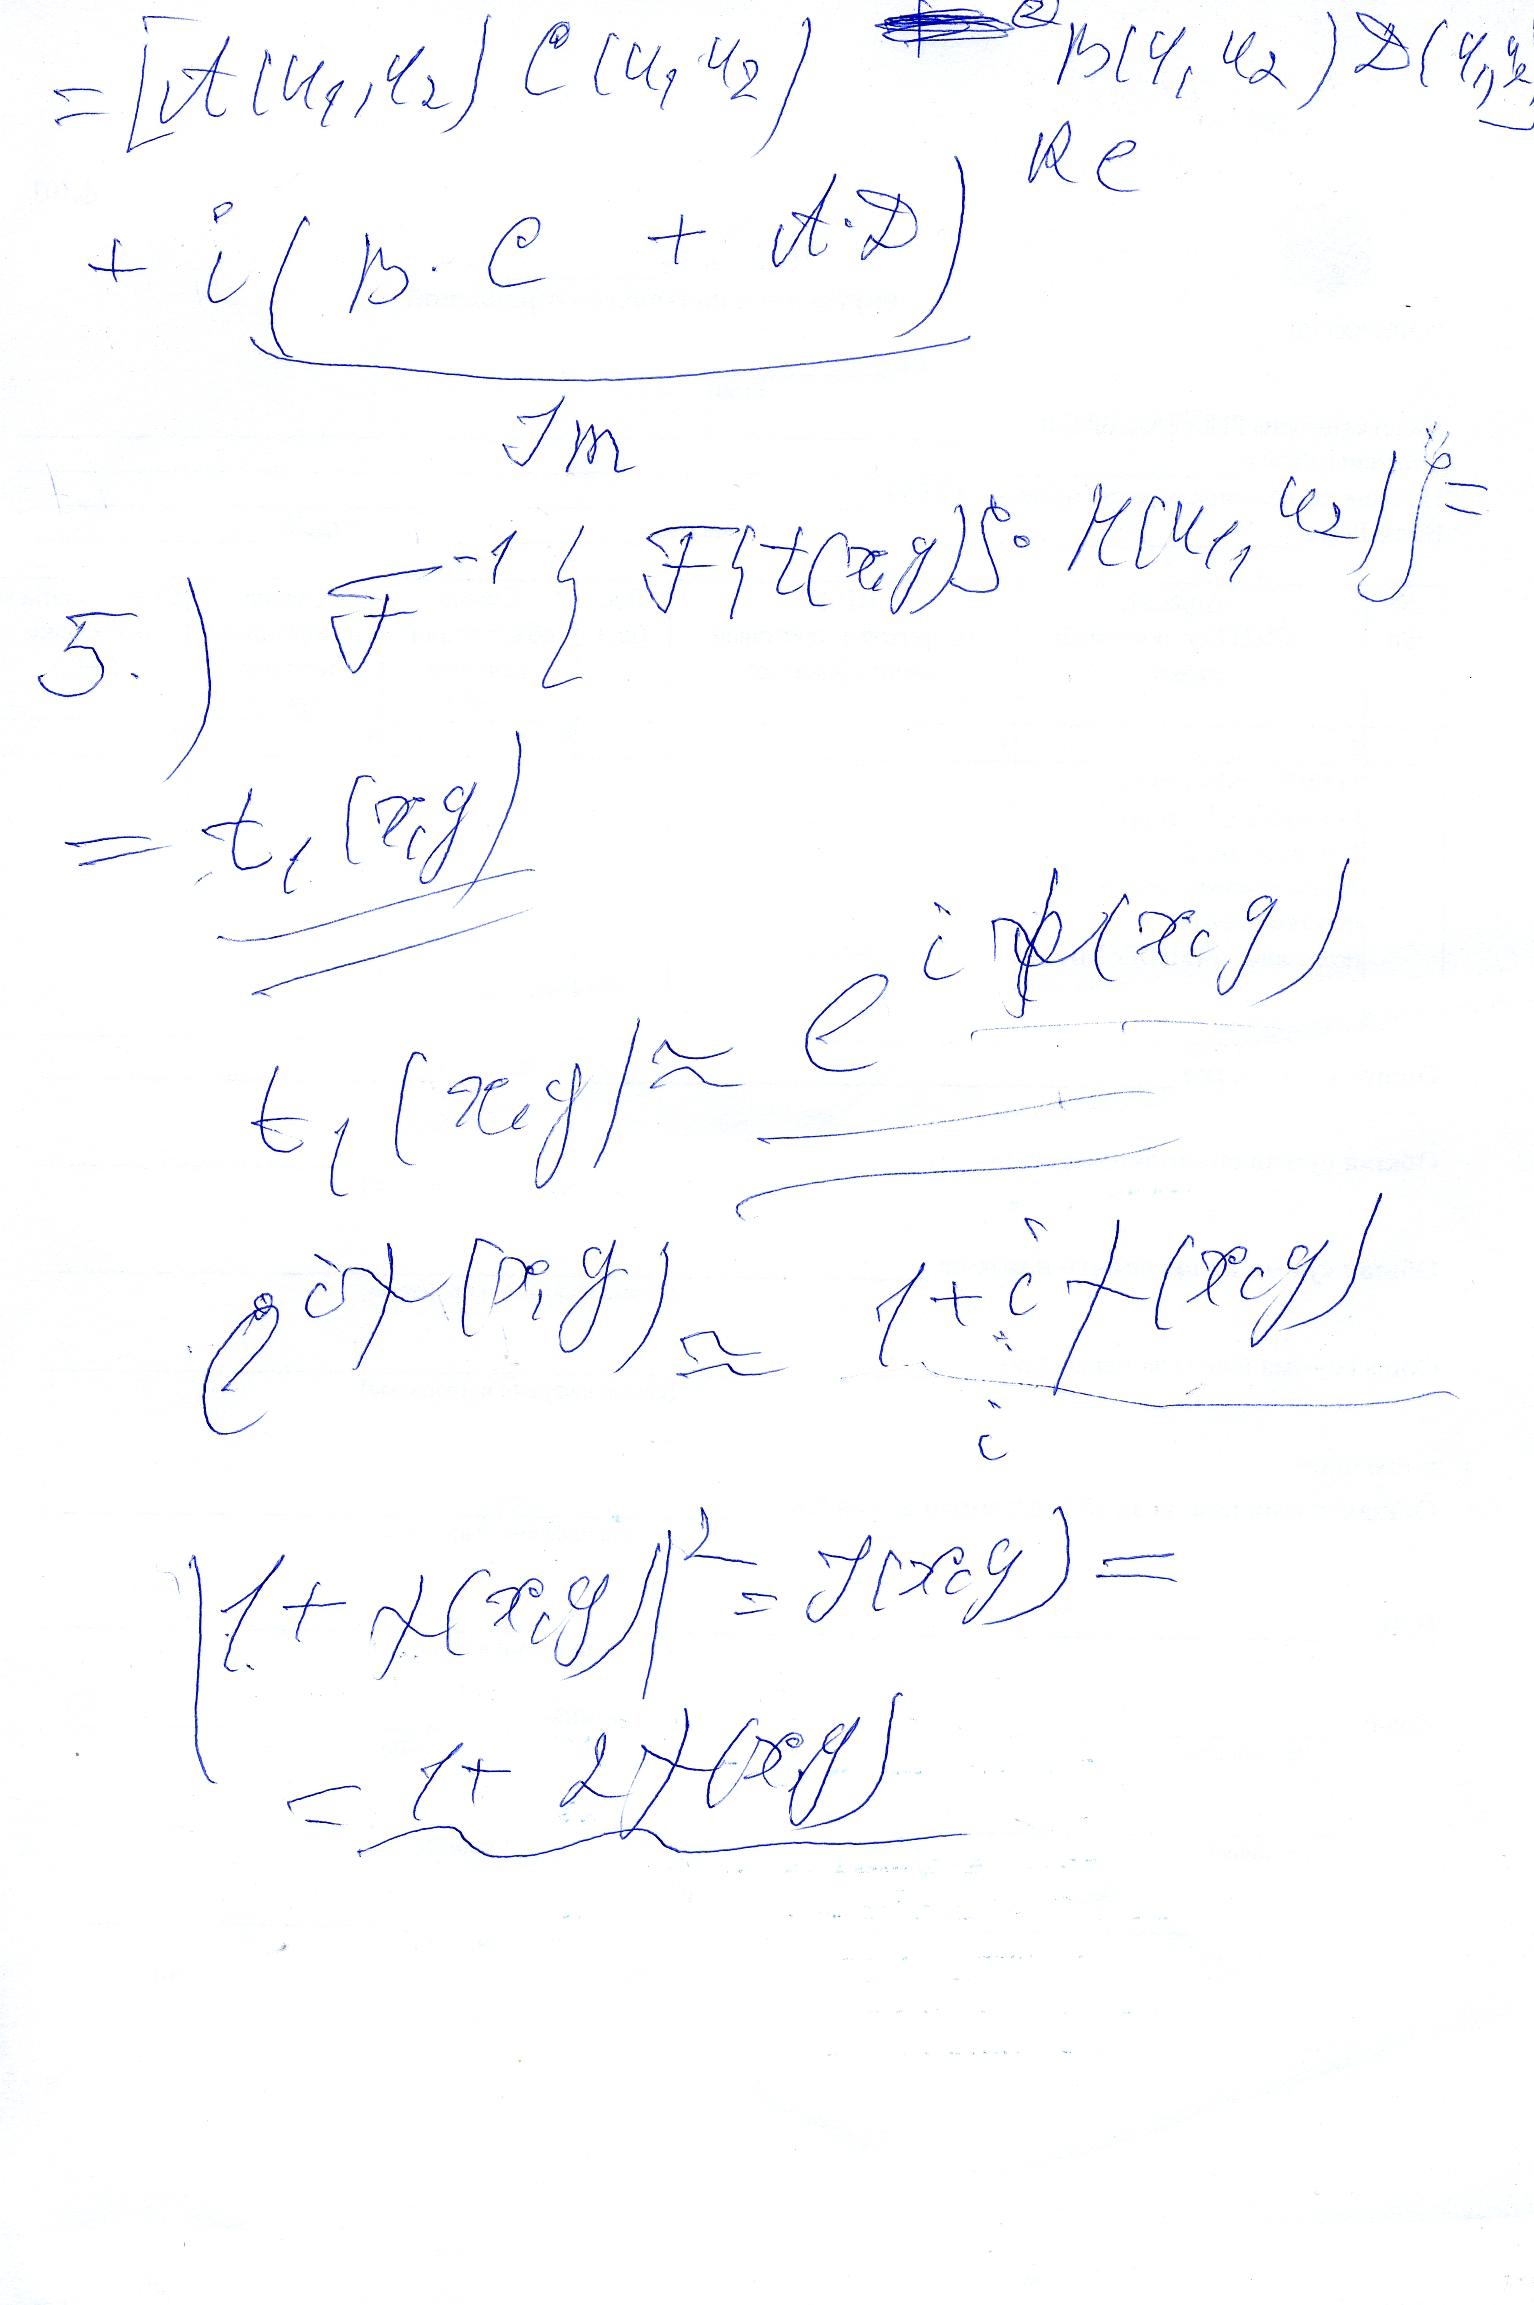 = [A(u₁,u₂) C(u₁,u₂) - B(u₁,u₂) D(u₁,u₂)]
Re
+ i(B·C + A·D)
Im
5.) F⁻¹{F{t(x,y)}·H(u₁,u₂)} =
= t₁(x,y)
t₁(x,y) ≈ e^{iψ(x,y)}
e^{iψ(x,y)} ≈ 1+iψ(x,y)
i
|1+ψ(x,y)|² = I(x,y) =
= 1+2ψ(x,y)